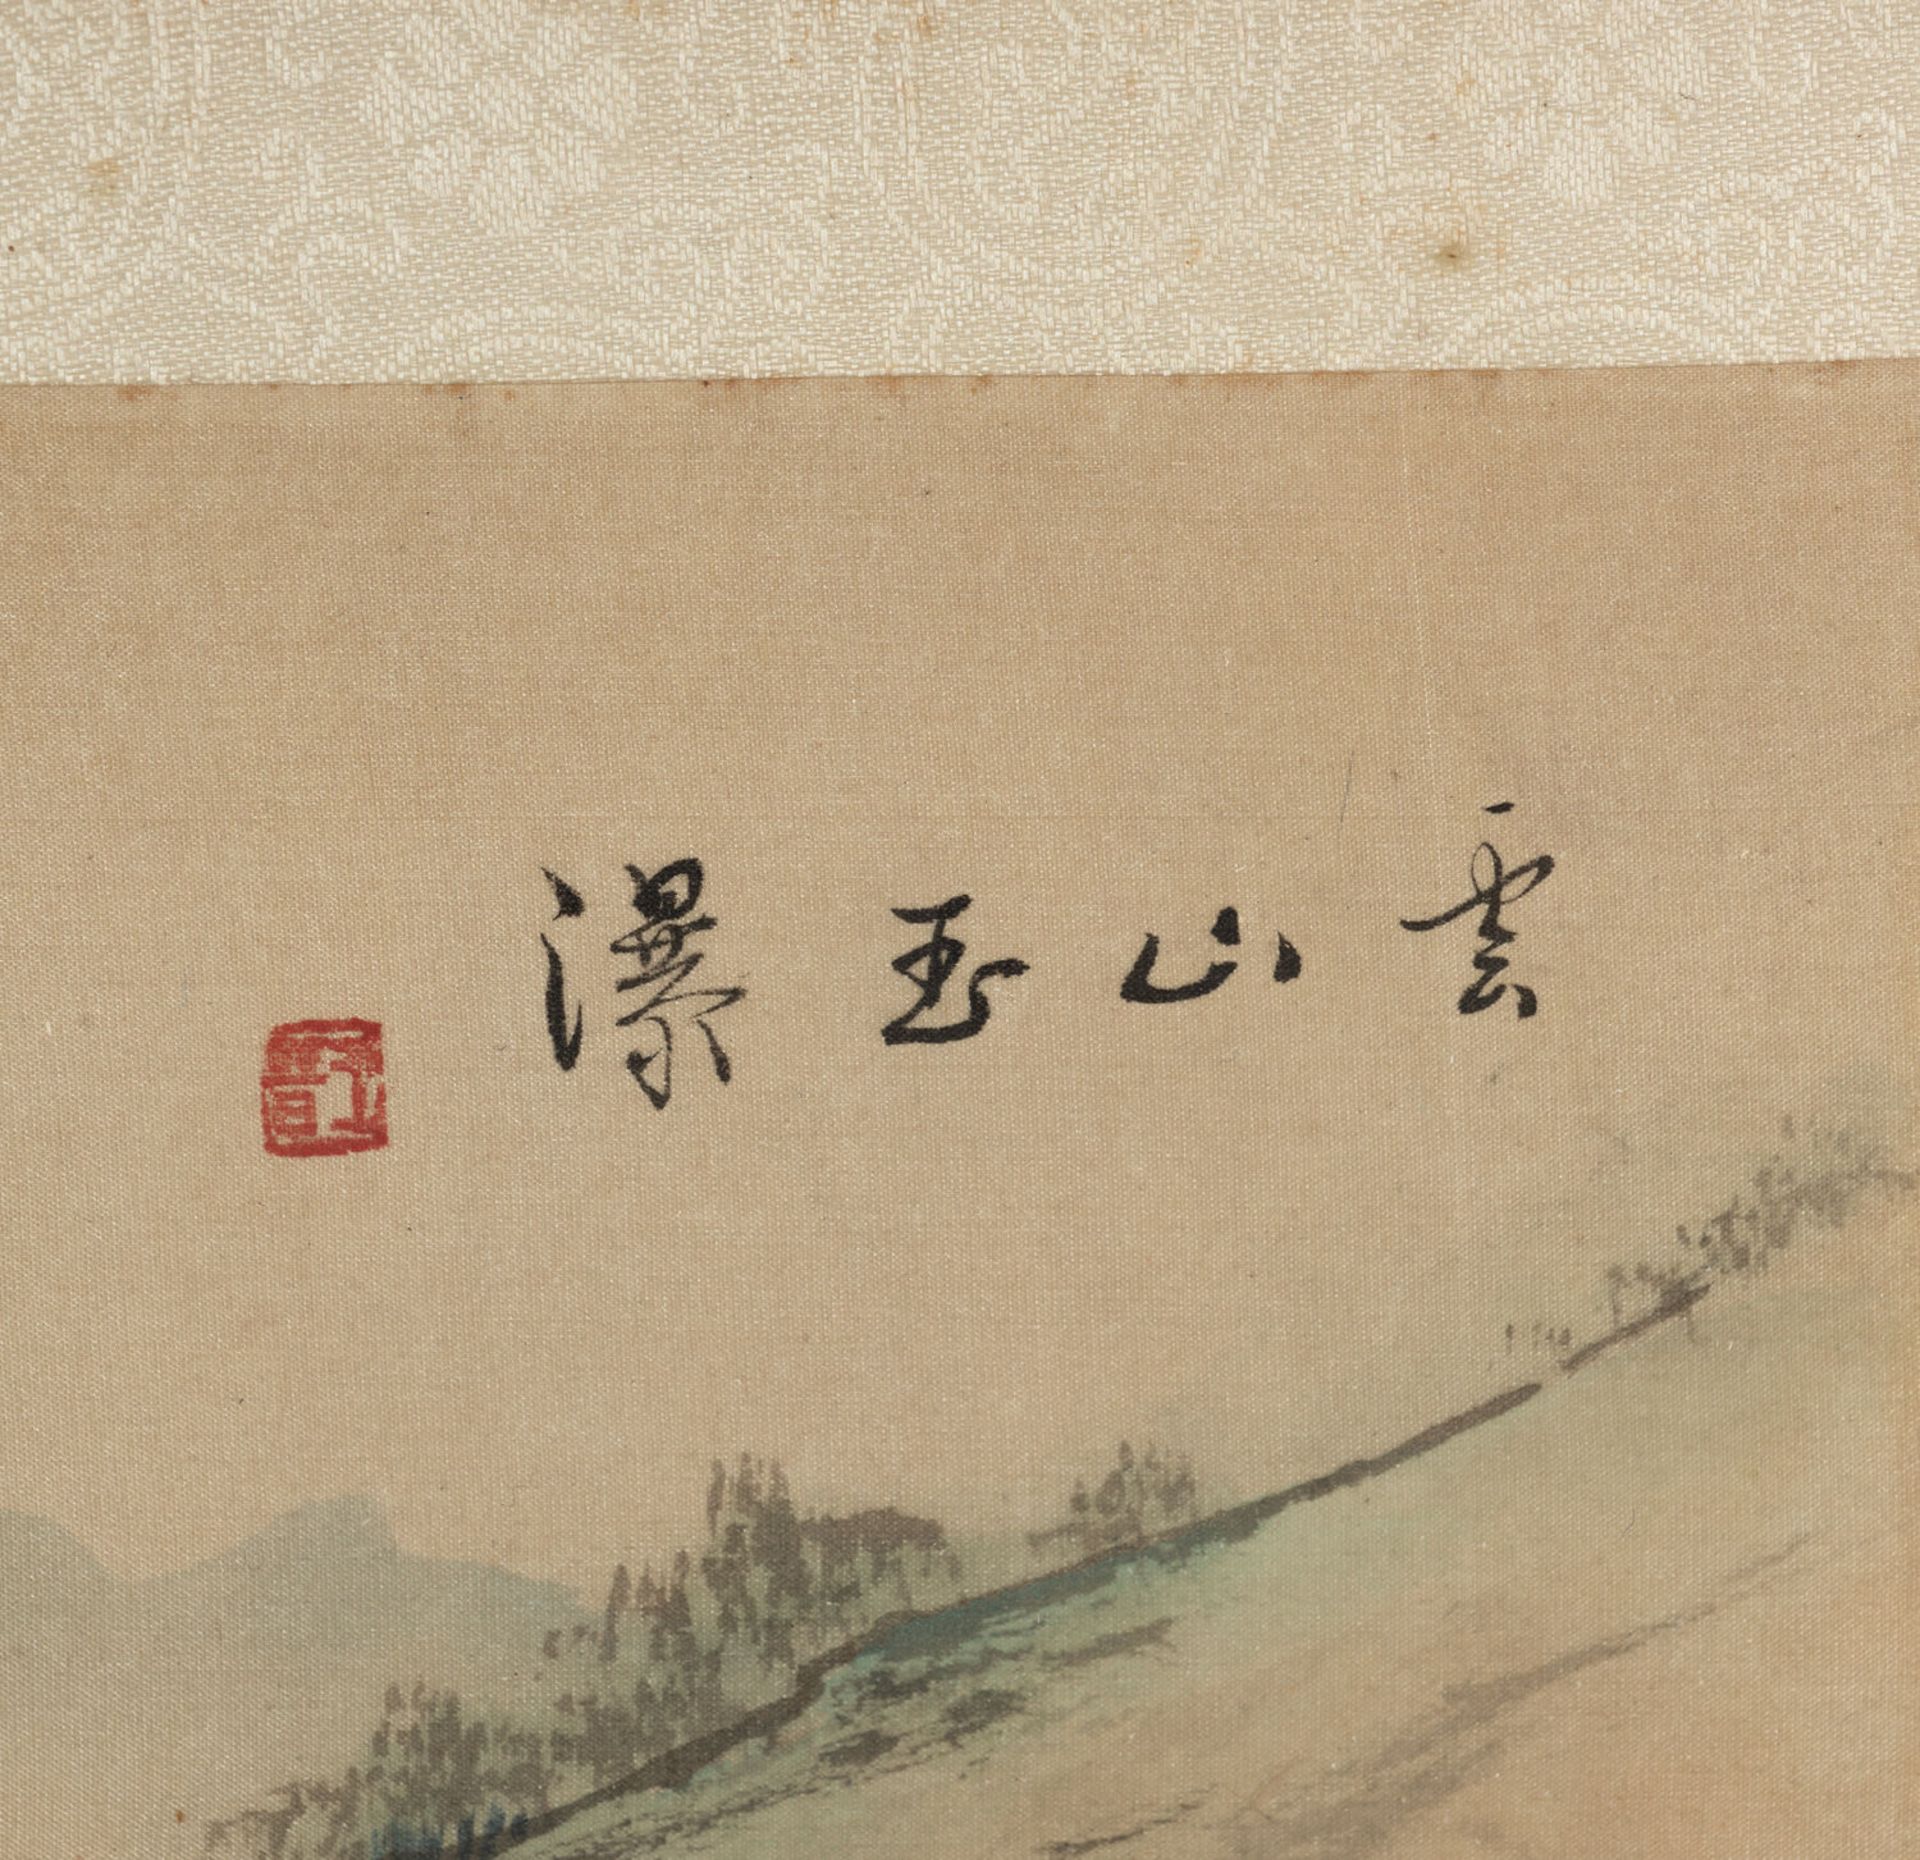 雲山玉瀑